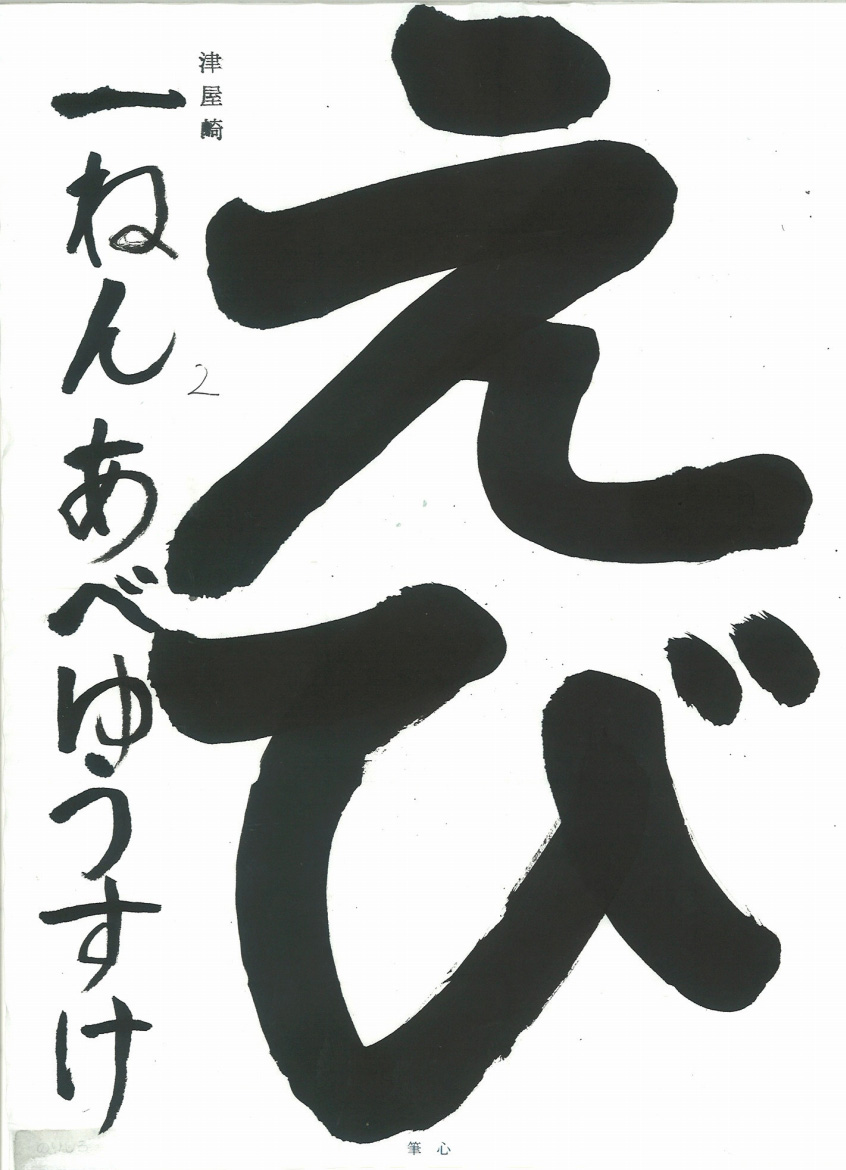 えび
津屋崎
一ねん あべゆうすけ
2
筆心